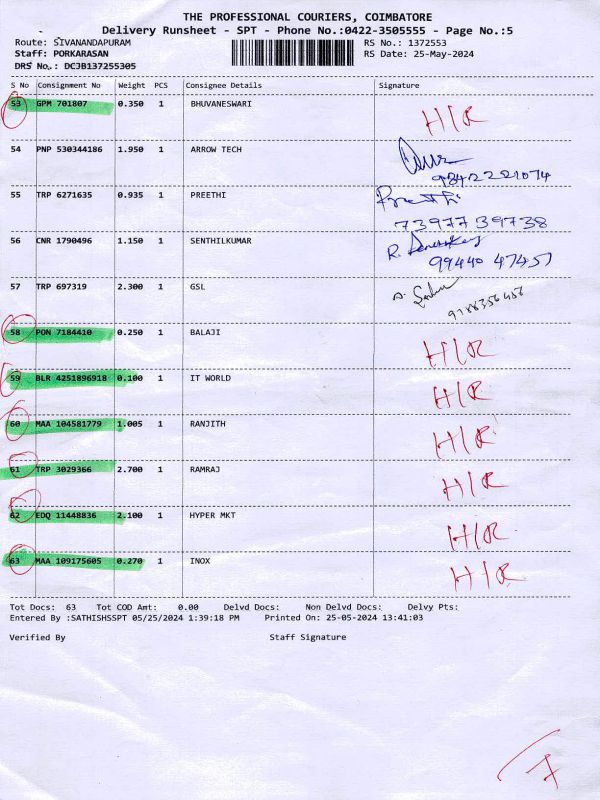 THE PROFESSIONAL COURIERS, COIMBATORE
Delivery Runsheet - SPT - Phone No.:0422-3505555 - Page No.:5
Route: SIVANANDAPURAM RS No.: 1372553
Staff: PORKARASAN RS Date: 25-May-2024
DRS No.: DCJB137255305
S No Consignment No Weight PCS Consignee Details Signature
53 GPM 701807 0.350 1 BHUVANESWARI H/R
54 PNP 530344186 1.950 1 ARROW TECH
9842221074
55 TRP 6271635 0.935 1 PREETHI Preethi
7397739738
56 CNR 1790496 1.150 1 SENTHILKUMAR R.
99440 47451
57 TRP 697319 2.300 1 GSL
58 PON 7184410 0.250 1 BALAJI H/R
59 BLR 4251896918 0.100 1 IT WORLD H/R
60 MAA 104581779 1.005 1 RANJITH H/R
61 TRP 3029366 2.700 1 RAMRAJ H/R
62 EDQ 11448836 2.100 1 HYPER MKT H/R
63 MAA 109175605 0.270 1 INOX H/R
Tot Docs: 63 Tot COD Amt: 0.00 Delvd Docs: Non Delvd Docs: Delvy Pts:
Entered By :SATHISHSSPT 05/25/2024 1:39:18 PM Printed On: 25-05-2024 13:41:03
Verified By Staff Signature
7